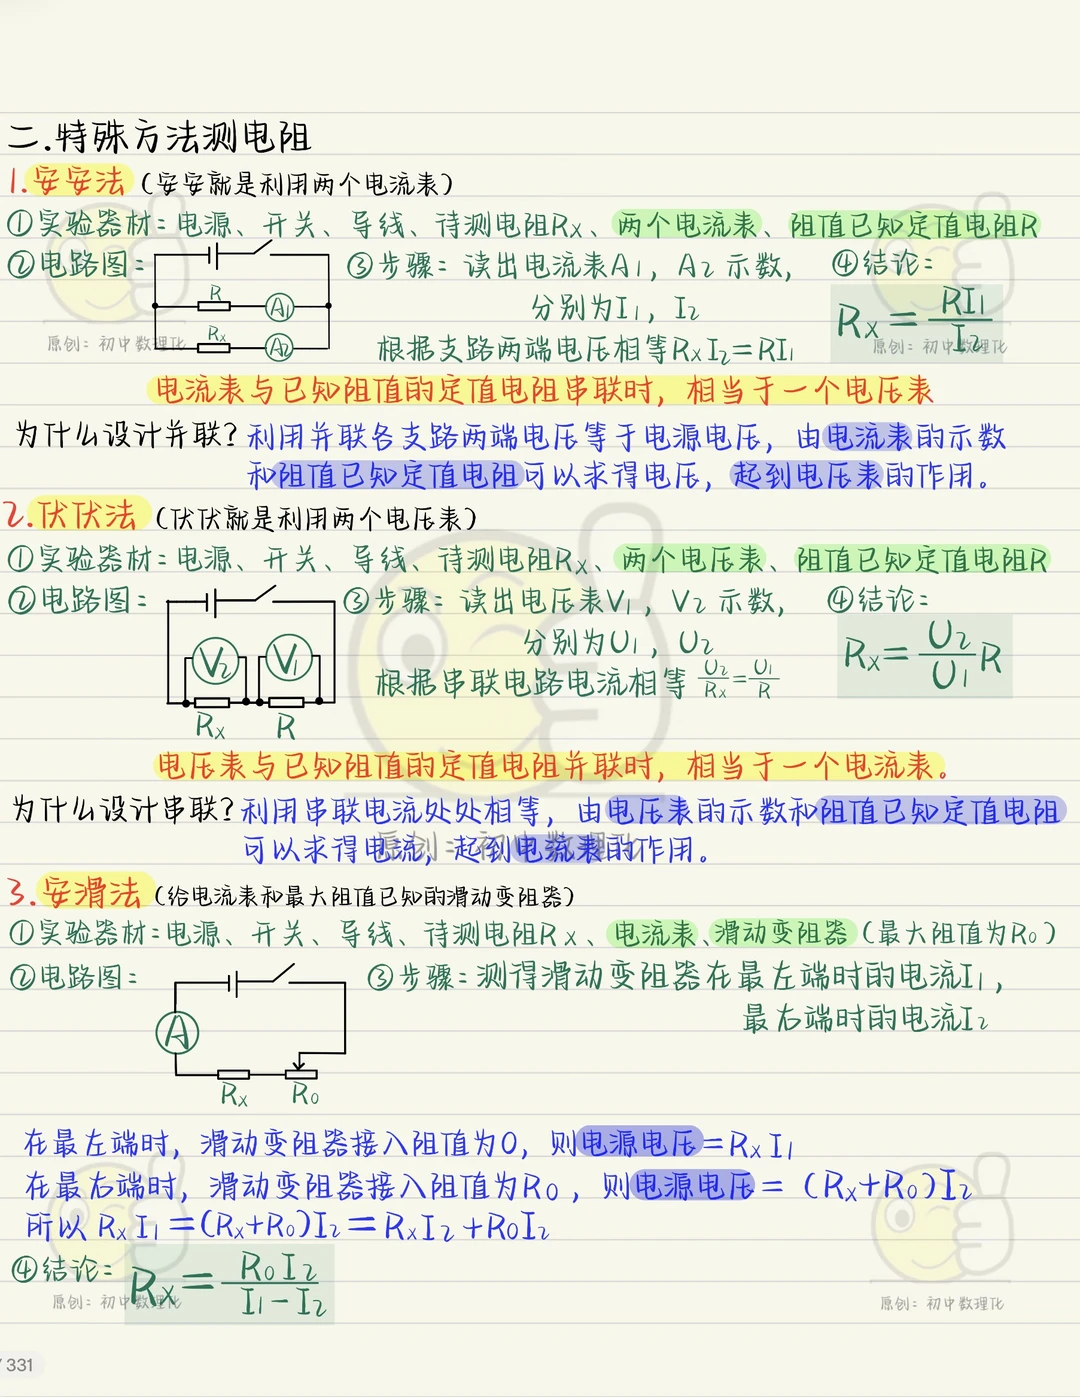 二.特殊方法测电阻
1.安安法(安安就是利用两个电流表)
①实验器材:电源、开关、导线、待测电阻Rx、两个电流表、阻值已知定值电阻R
②电路图:
R
A1
Rx
A2
③步骤:读出电流表A1,A2示数,
分别为I1,I2
根据支路两端电压相等RxI2=RI1
④结论:
Rx=RI1/I2
原创:初中数理化
原创:初中数理化
电流表与已知阻值的定值电阻串联时,相当于一个电压表
为什么设计并联?利用并联各支路两端电压等于电源电压,由电流表的示数
和阻值已知定值电阻可以求得电压,起到电压表的作用。
2.伏伏法(伏伏就是利用两个电压表)
①实验器材:电源、开关、导线、待测电阻Rx、两个电压表、阻值已知定值电阻R
②电路图:
V2 V1
Rx R
③步骤:读出电压表V1,V2示数,
分别为U1,U2
根据串联电路电流相等U2/Rx=U1/R
④结论:
Rx=U2/U1 R
电压表与已知阻值的定值电阻并联时,相当于一个电流表。
为什么设计串联?利用串联电流处处相等,由电压表的示数和阻值已知定值电阻
可以求得电流,起到电流表的作用。
原创:初中数理化
3.安滑法(给电流表和最大阻值已知的滑动变阻器)
①实验器材:电源、开关、导线、待测电阻Rx、电流表、滑动变阻器(最大阻值为R0)
②电路图:
A
Rx R0
③步骤:测得滑动变阻器在最左端时的电流I1,
最右端时的电流I2
在最左端时,滑动变阻器接入阻值为0,则电源电压=RxI1
在最右端时,滑动变阻器接入阻值为R0,则电源电压=(Rx+R0)I2
所以RxI1=(Rx+R0)I2=RxI2+R0I2
④结论:Rx=R0I2/I1-I2
原创:初中数理化
原创:初中数理化
/ 331